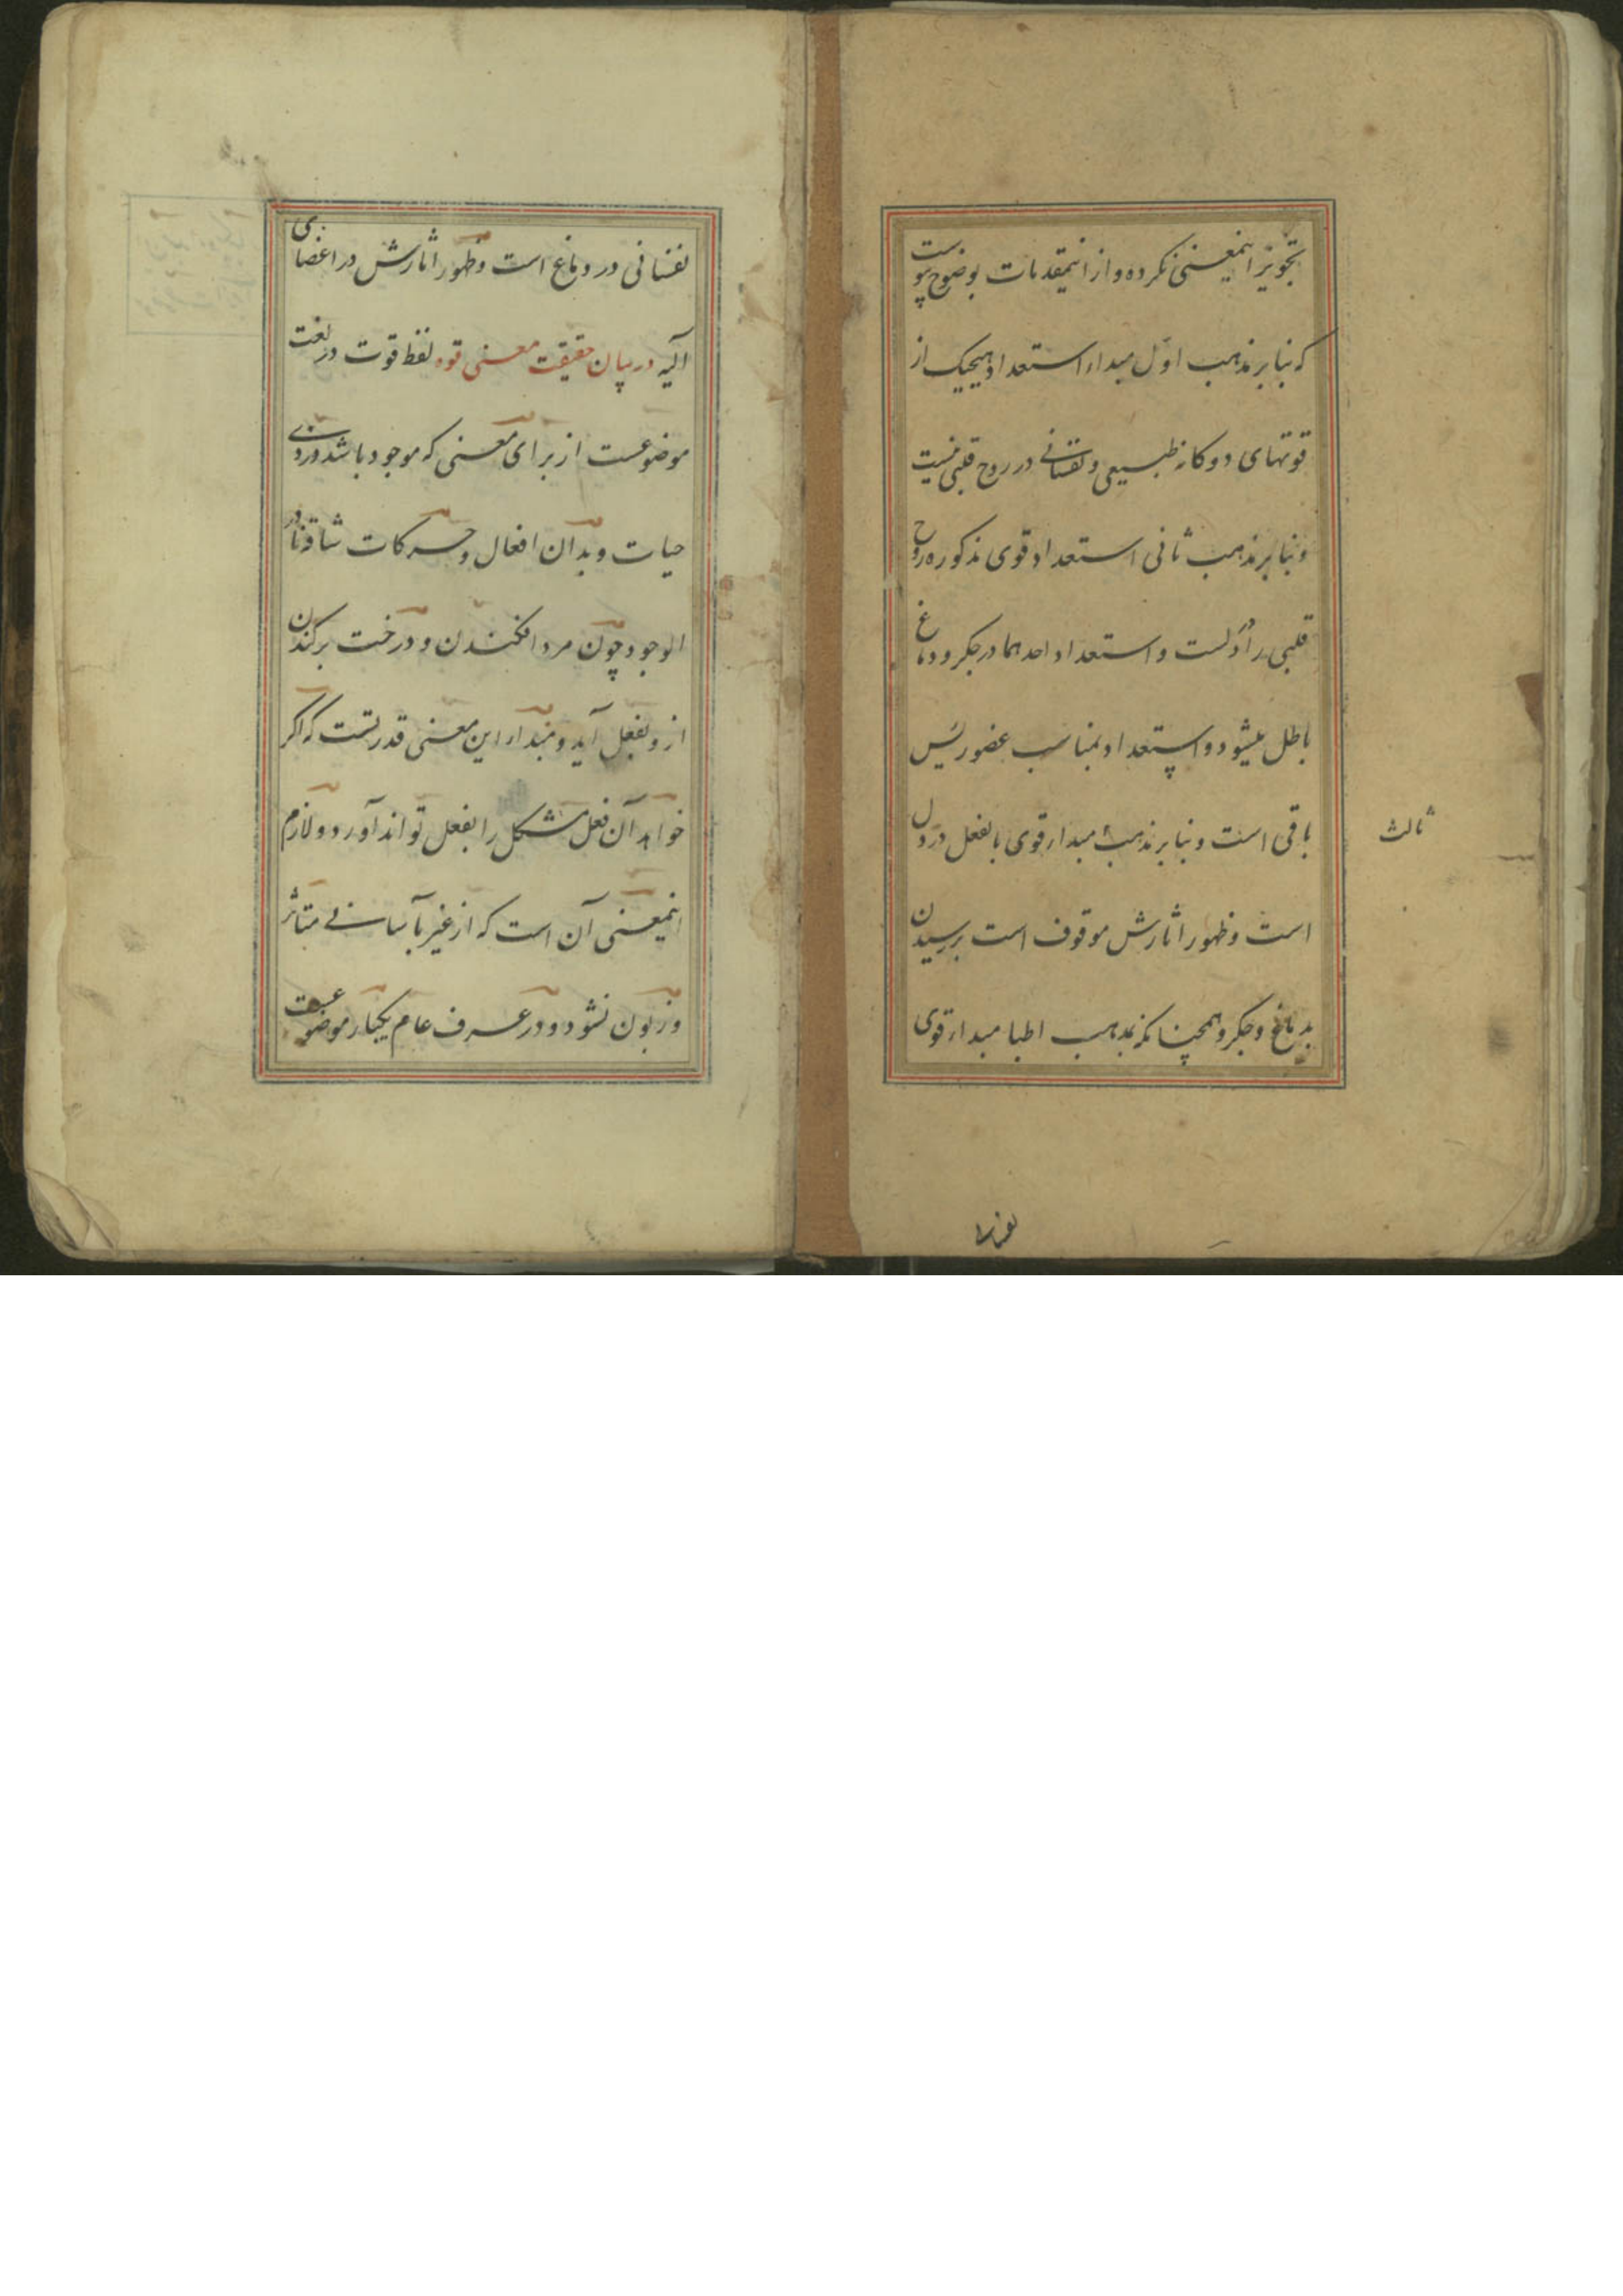 تجویز اینمعنی نکرده و از اینمقدمات بوضوح پیوست
که بنا بر مذهب اول مبداء استعداد هیچیک از
قوتهای دوکانه طبیعی و نفسانی در روح قلبی نیست
و بنا بر مذهب ثانی استعداد قوی مذکوره روح
قلبی را در دلست و استعداد احدهما در جکر و دماغ
باطل میشود و استعداد بمناسب عضو رئیس
باقی است و بنا بر مذهب مبداء قوی بالفعل در دل
ثالث
است و ظهور اثارش موقوف است برسیدن
بدماغ و جکر و همچنانکه بمذهب اطبا مبداء قوی
نفسانی
نفسانی در دماغ است و ظهور اثارش در اعضای
آلیه در بیان حقیقت معنی قوه لفظ قوت در لغت
موضوعست از برای معنی که موجود باشد در ذی
حیات و بدان افعال و حرکات شاقه نادر
الوجود چون مرد افکندن و درخت برکندن
ازو بفعل آید و مبداء این معنی قدرتست که اکر
خواهد آن فعل مشکل را بفعل تواند آورد و لازم
اینمعنی آن است که از غیر بآسانی متاثر
و زبون نشود و در عرف عام یکبار موضوعست